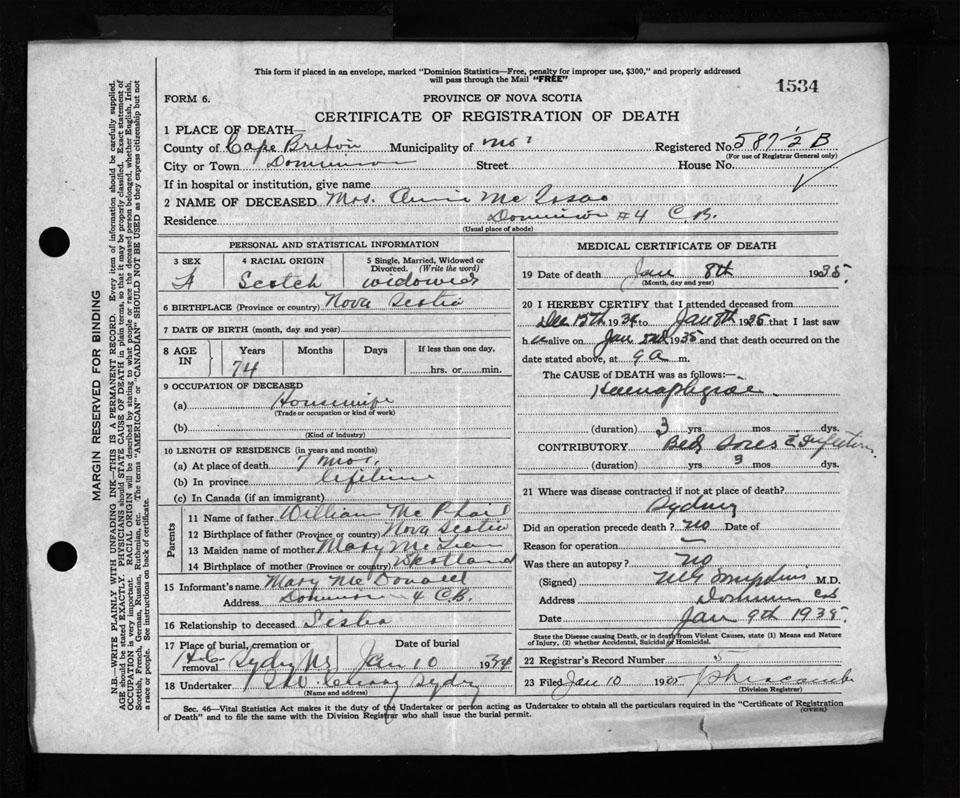 This form if placed in an envelope, marked "Dominion Statistics—Free, penalty for improper use, $300," and properly addressed
will pass through the Mail "FREE"
1534
FORM 6.
PROVINCE OF NOVA SCOTIA
CERTIFICATE OF REGISTRATION OF DEATH
1 PLACE OF DEATH
County of Cape Breton Municipality of Registered No. 587 1/2 B
(For use of Registrar General only)
City or Town Dominion Street House No.
If in hospital or institution, give name
2 NAME OF DECEASED Mrs. Annie Mc Issac
Residence Dominion #4 C.B.
(Usual place of abode)
PERSONAL AND STATISTICAL INFORMATION
3 SEX 4 RACIAL ORIGIN 5 Single, Married, Widowed or
Divorced. (Write the word)
F Scotch widowed
6 BIRTHPLACE (Province or country) Nova Scotia
7 DATE OF BIRTH (month, day and year)
8 AGE IN Years Months Days If less than one day,
74 hrs. or min.
9 OCCUPATION OF DECEASED
(a) Housewife
(Trade or occupation or kind of work)
(b)
(Kind of industry)
10 LENGTH OF RESIDENCE (in years and months)
(a) At place of death 7 mos.
(b) In province lifetime
(c) In Canada (if an immigrant)
Parents
11 Name of father William Mc Phail
12 Birthplace of father (Province or country) Nova Scotia
13 Maiden name of mother Mary Mc Lean
14 Birthplace of mother (Province or country) Scotland
15 Informant's name Mary Mc Donald
Address Dominion 4 C.B.
16 Relationship to deceased Sister
17 Place of burial, cremation or removal Date of burial
Sydney NS Jan 10 1934
18 Undertaker Sydney
(Name and address)
MEDICAL CERTIFICATE OF DEATH
19 Date of death Jan 8th 1935
(Month, day and year)
20 I HEREBY CERTIFY that I attended deceased from
Dec 15th 1934 to Jan 8th 1935 that I last saw
h alive on Jan 2nd 1935 and that death occurred on the
date stated above, at 9 a m.
The CAUSE OF DEATH was as follows:
(duration) 3 yrs mos dys.
CONTRIBUTORY Bed Sores Infection
(duration) yrs 3 mos dys.
21 Where was disease contracted if not at place of death?
Sydney
Did an operation precede death? no Date of
Reason for operation —
Was there an autopsy? no
(Signed) M.D.
Address Dominion
Date Jan 9th 1935
State the Disease causing Death, or in death from Violent Causes, state (1) Means and Nature
of Injury, (2) whether Accidental, Suicidal or Homicidal.
22 Registrar's Record Number 5
23 Filed Jan 10 1935
(Division Registrar)
Sec. 46—Vital Statistics Act makes it the duty of the Undertaker or person acting as Undertaker to obtain all the particulars required in the "Certificate of Registration
of Death" and to file the same with the Division Registrar who shall issue the burial permit.
(OVER)
MARGIN RESERVED FOR BINDING
N.B.—WRITE PLAINLY WITH UNFADING INK—THIS IS A PERMANENT RECORD. Every item of information should be carefully supplied.
AGE should be stated EXACTLY. PHYSICIANS should STATE CAUSE OF DEATH in plain terms, so that it may be properly classified. Exact statement of
OCCUPATION is very important. RACIAL ORIGIN will be described by stating to what people or race the deceased person belonged, whether English, Irish,
Scottish or French, German, Russian, Ruthenian, etc. The terms "AMERICAN" or "CANADIAN" SHOULD NOT BE USED as they express citizenship but not
a race or people. See instructions on back of certificate.